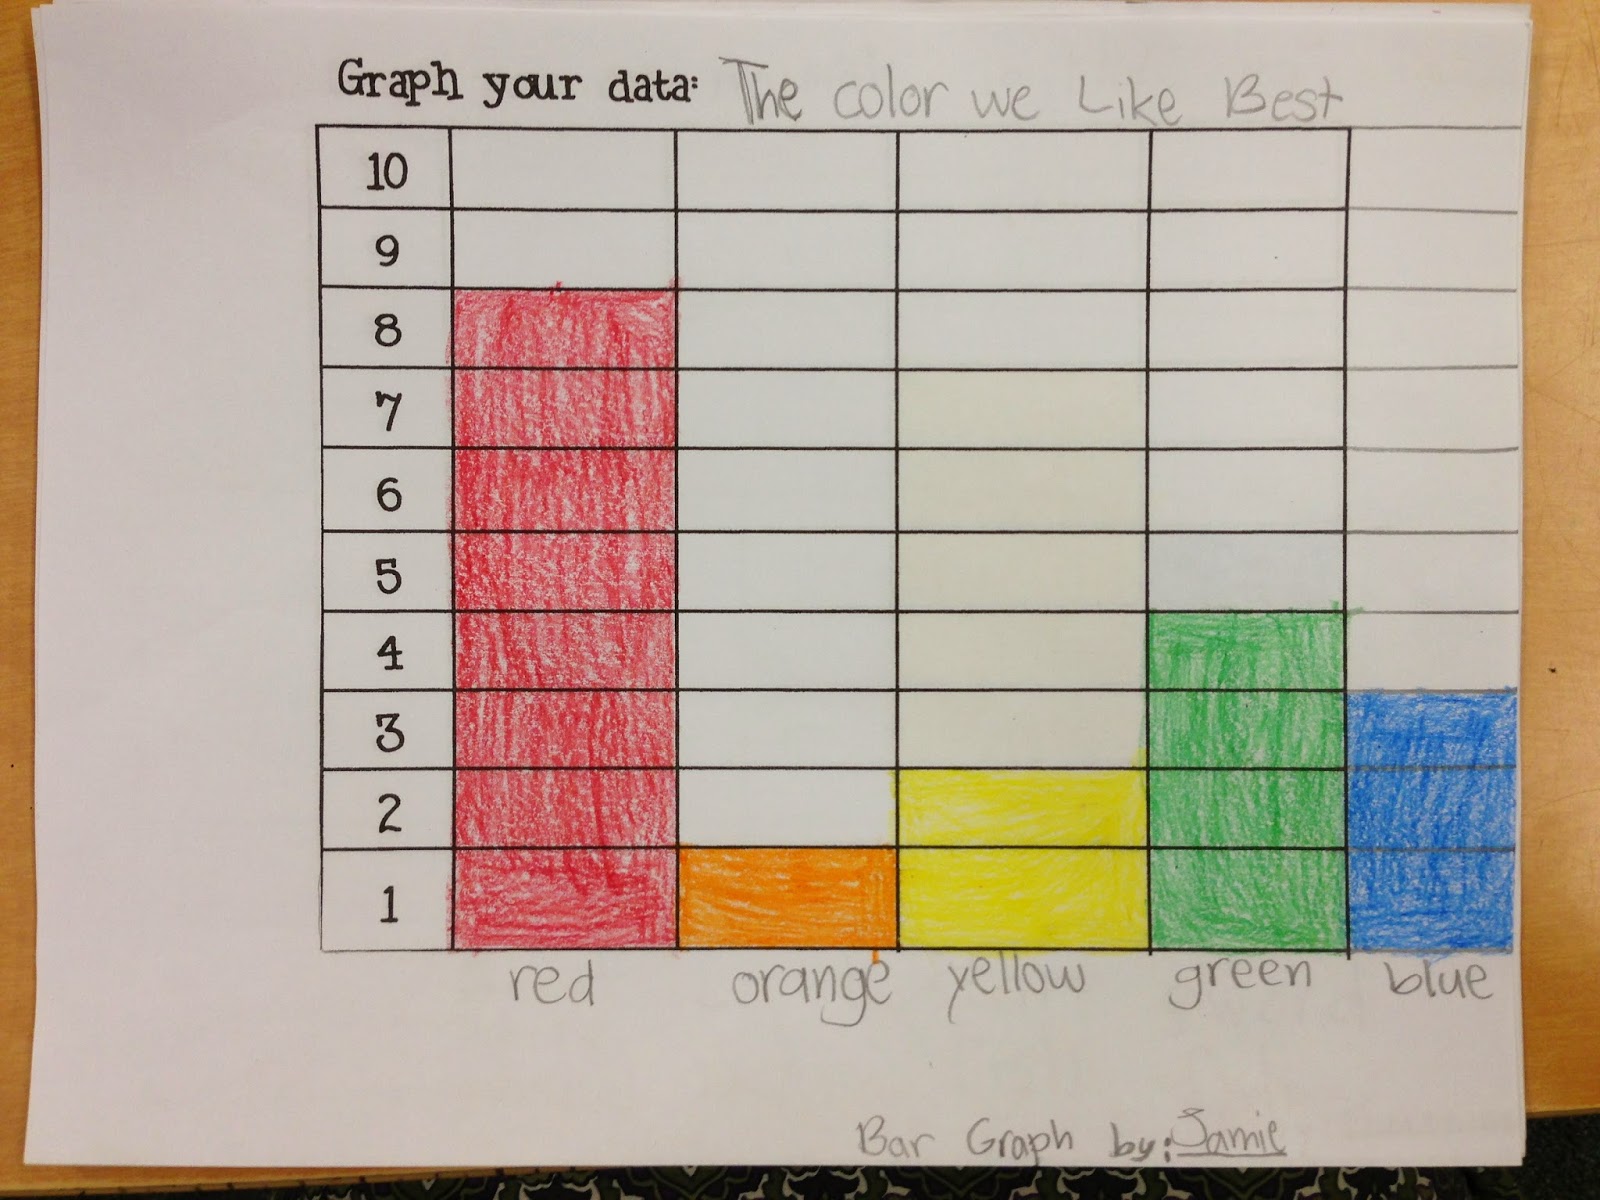 Graph your data: The color we Like Best
10
9
8
7
6
5
4
3
2
1
red orange yellow green blue
Bar Graph by: Jamie